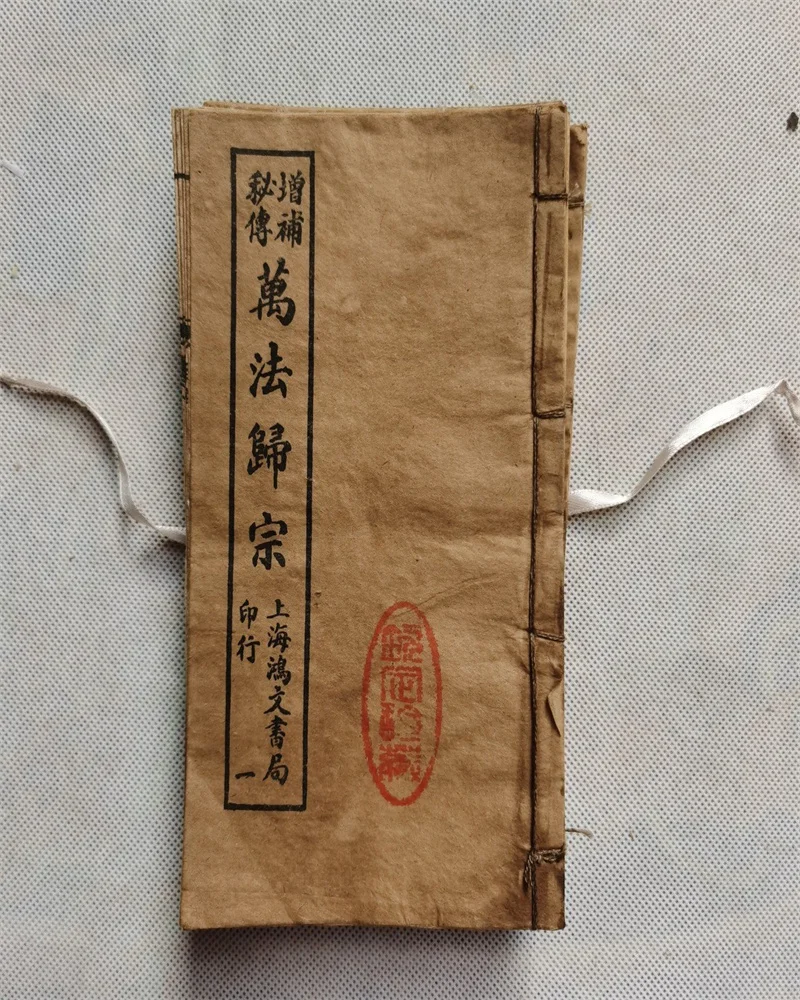 增補
秘傳
萬法歸宗
上海鴻文書局
印行
一